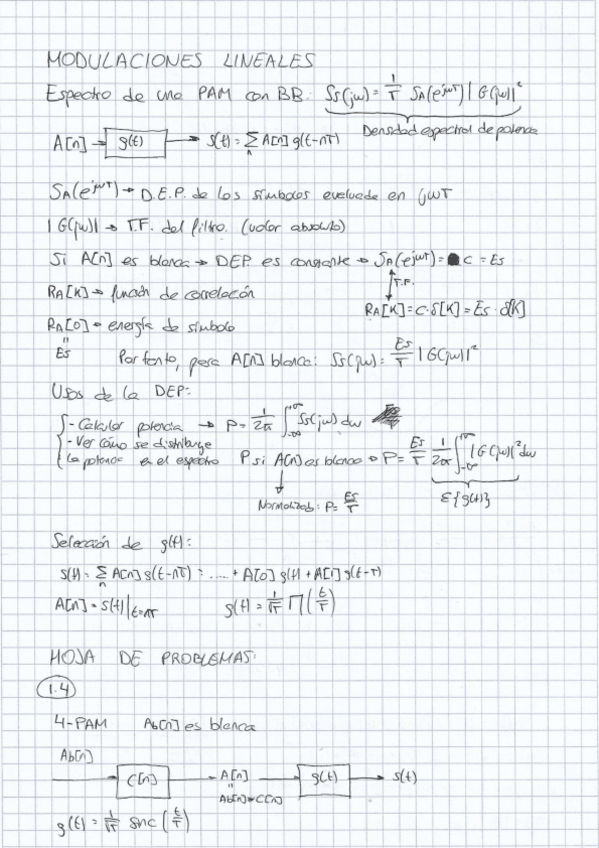 MODULACIONES LINEALES
Espectro de una PAM con BB: Ss(jω) = 1/T SA(e^jωT) |G(jω)|²
Densidad espectral de potencia
A[n] → g(t) → s(t) = Σn A[n] g(t-nT)
SA(e^jωT) → D.E.P. de los símbolos evaluada en jωT
|G(jω)| → T.F. del filtro. (valor absoluto)
Si A[n] es blanca → DEP es constante → SA(e^jωT) = C = Es
↕ T.F.
RA[K] → función de correlación
RA[K] = C·δ[K] = Es·δ[K]
RA[0] = energía de símbolo
"
Es
Por tanto, para A[n] blanca: Ss(jω) = Es/T |G(jω)|²
Usos de la DEP:
- Calcular potencia → P = 1/2π ∫-∞+∞ Ss(jω) dω
- Ver cómo se distribuye
la potencia en el espectro P si A[n] es blanca → P = Es/T 1/2π ∫-∞+∞ |G(jω)|² dω
Normalizado: P = Es/T
ε{g(t)}
Selección de g(t):
s(t) = Σn A[n] g(t-nT) = .... + A[0] g(t) + A[1] g(t-T)
A[n] = s(t)|t=nT g(t) = 1/√T Π(t/T)
HOJA DE PROBLEMAS:
1.4
4-PAM Ab[n] es blanca
Ab[n]
C[n] → A[n] → g(t) → s(t)
"
Ab[n]*C[n]
g(t) = 1/√T sinc(t/T)